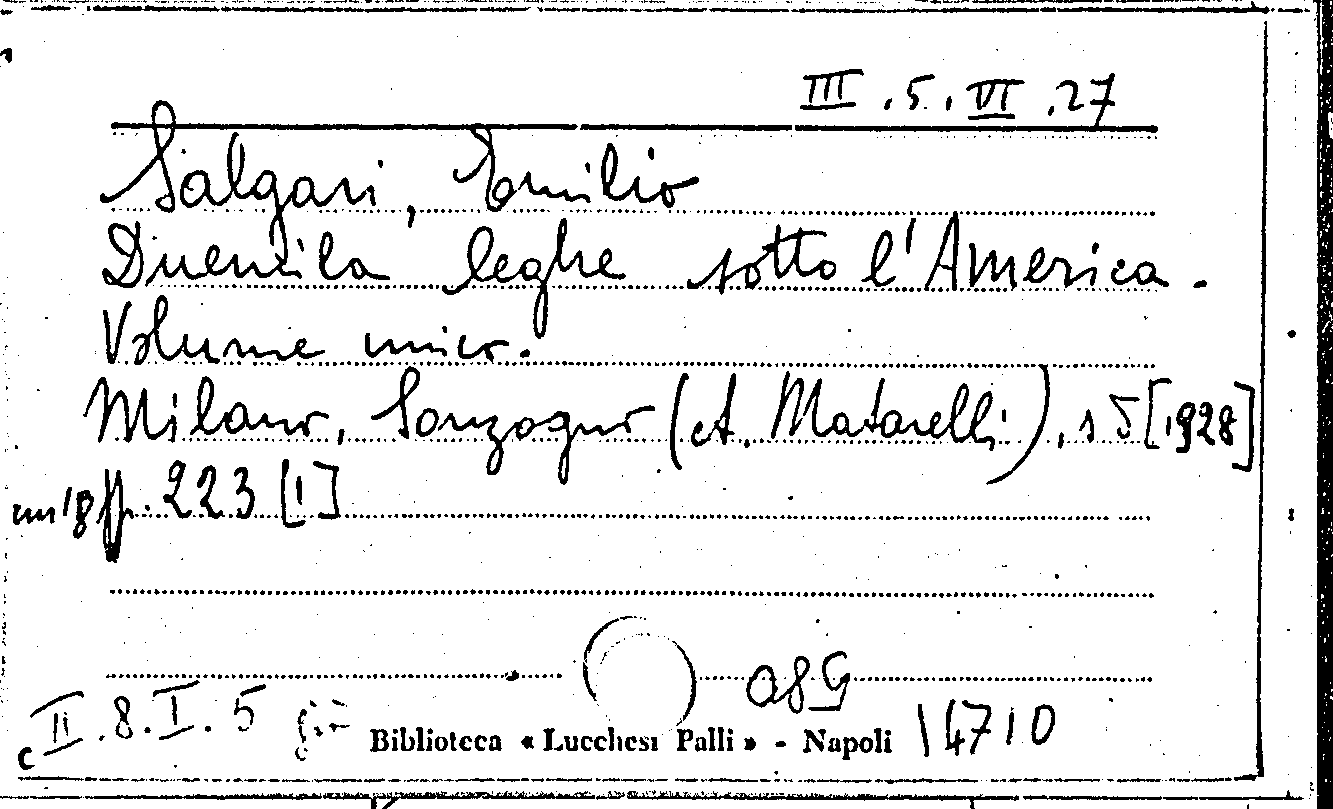 III.5.VI.27
Salgari, Emilio
Duemila leghe sotto l'America.
Volume unico.
Milano, Sonzogno (A. Matarelli), s d [1928]
in 18 pp. 223 [1]
II.8.I.5 già
Biblioteca « Lucchesi Palli » - Napoli 14710